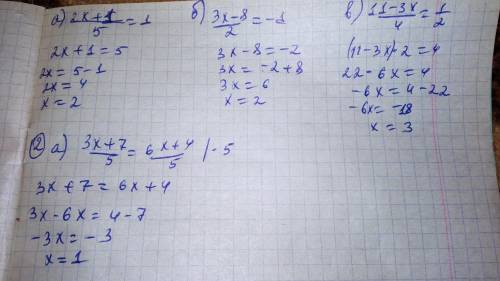 а) 2x+1/5 = 1
2x+1=5
2x = 5-1
2x = 4
x = 2
б) 3x-8/2 = -1
3x-8=-2
3x= -2+8
3x= 6
x = 2
в) 11-3x/4 = 1/2
(11-3x)·2=4
22-6x=4
-6x=4-22
-6x= -18
x = 3
② а) 3x+7/5 = 6x+4/5 |·5
3x+7=6x+4
3x-6x= 4-7
-3x=-3
x=1